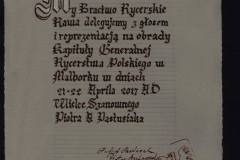 My Bractwo Rycerskie
Rawa delegujemy z głosem
i reprezentacją na obrady
Kapituły Generalnej
Rycerstwa Polskiego w
Malborku w dniach
21-22 Aprila 2017 AD
Wielce Szanownego
Piotra A Pastusiaka